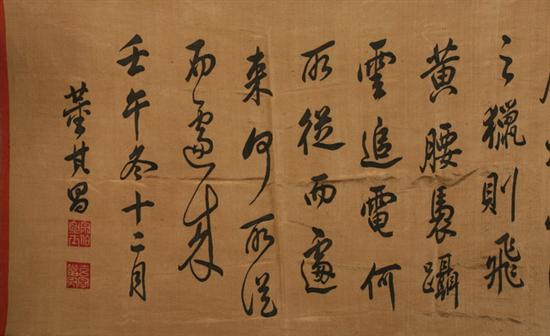 之獵則飛
黃腰褭躡
雲追電何
所從而遽
來何所從
而遽來
壬午冬十二月
董其昌